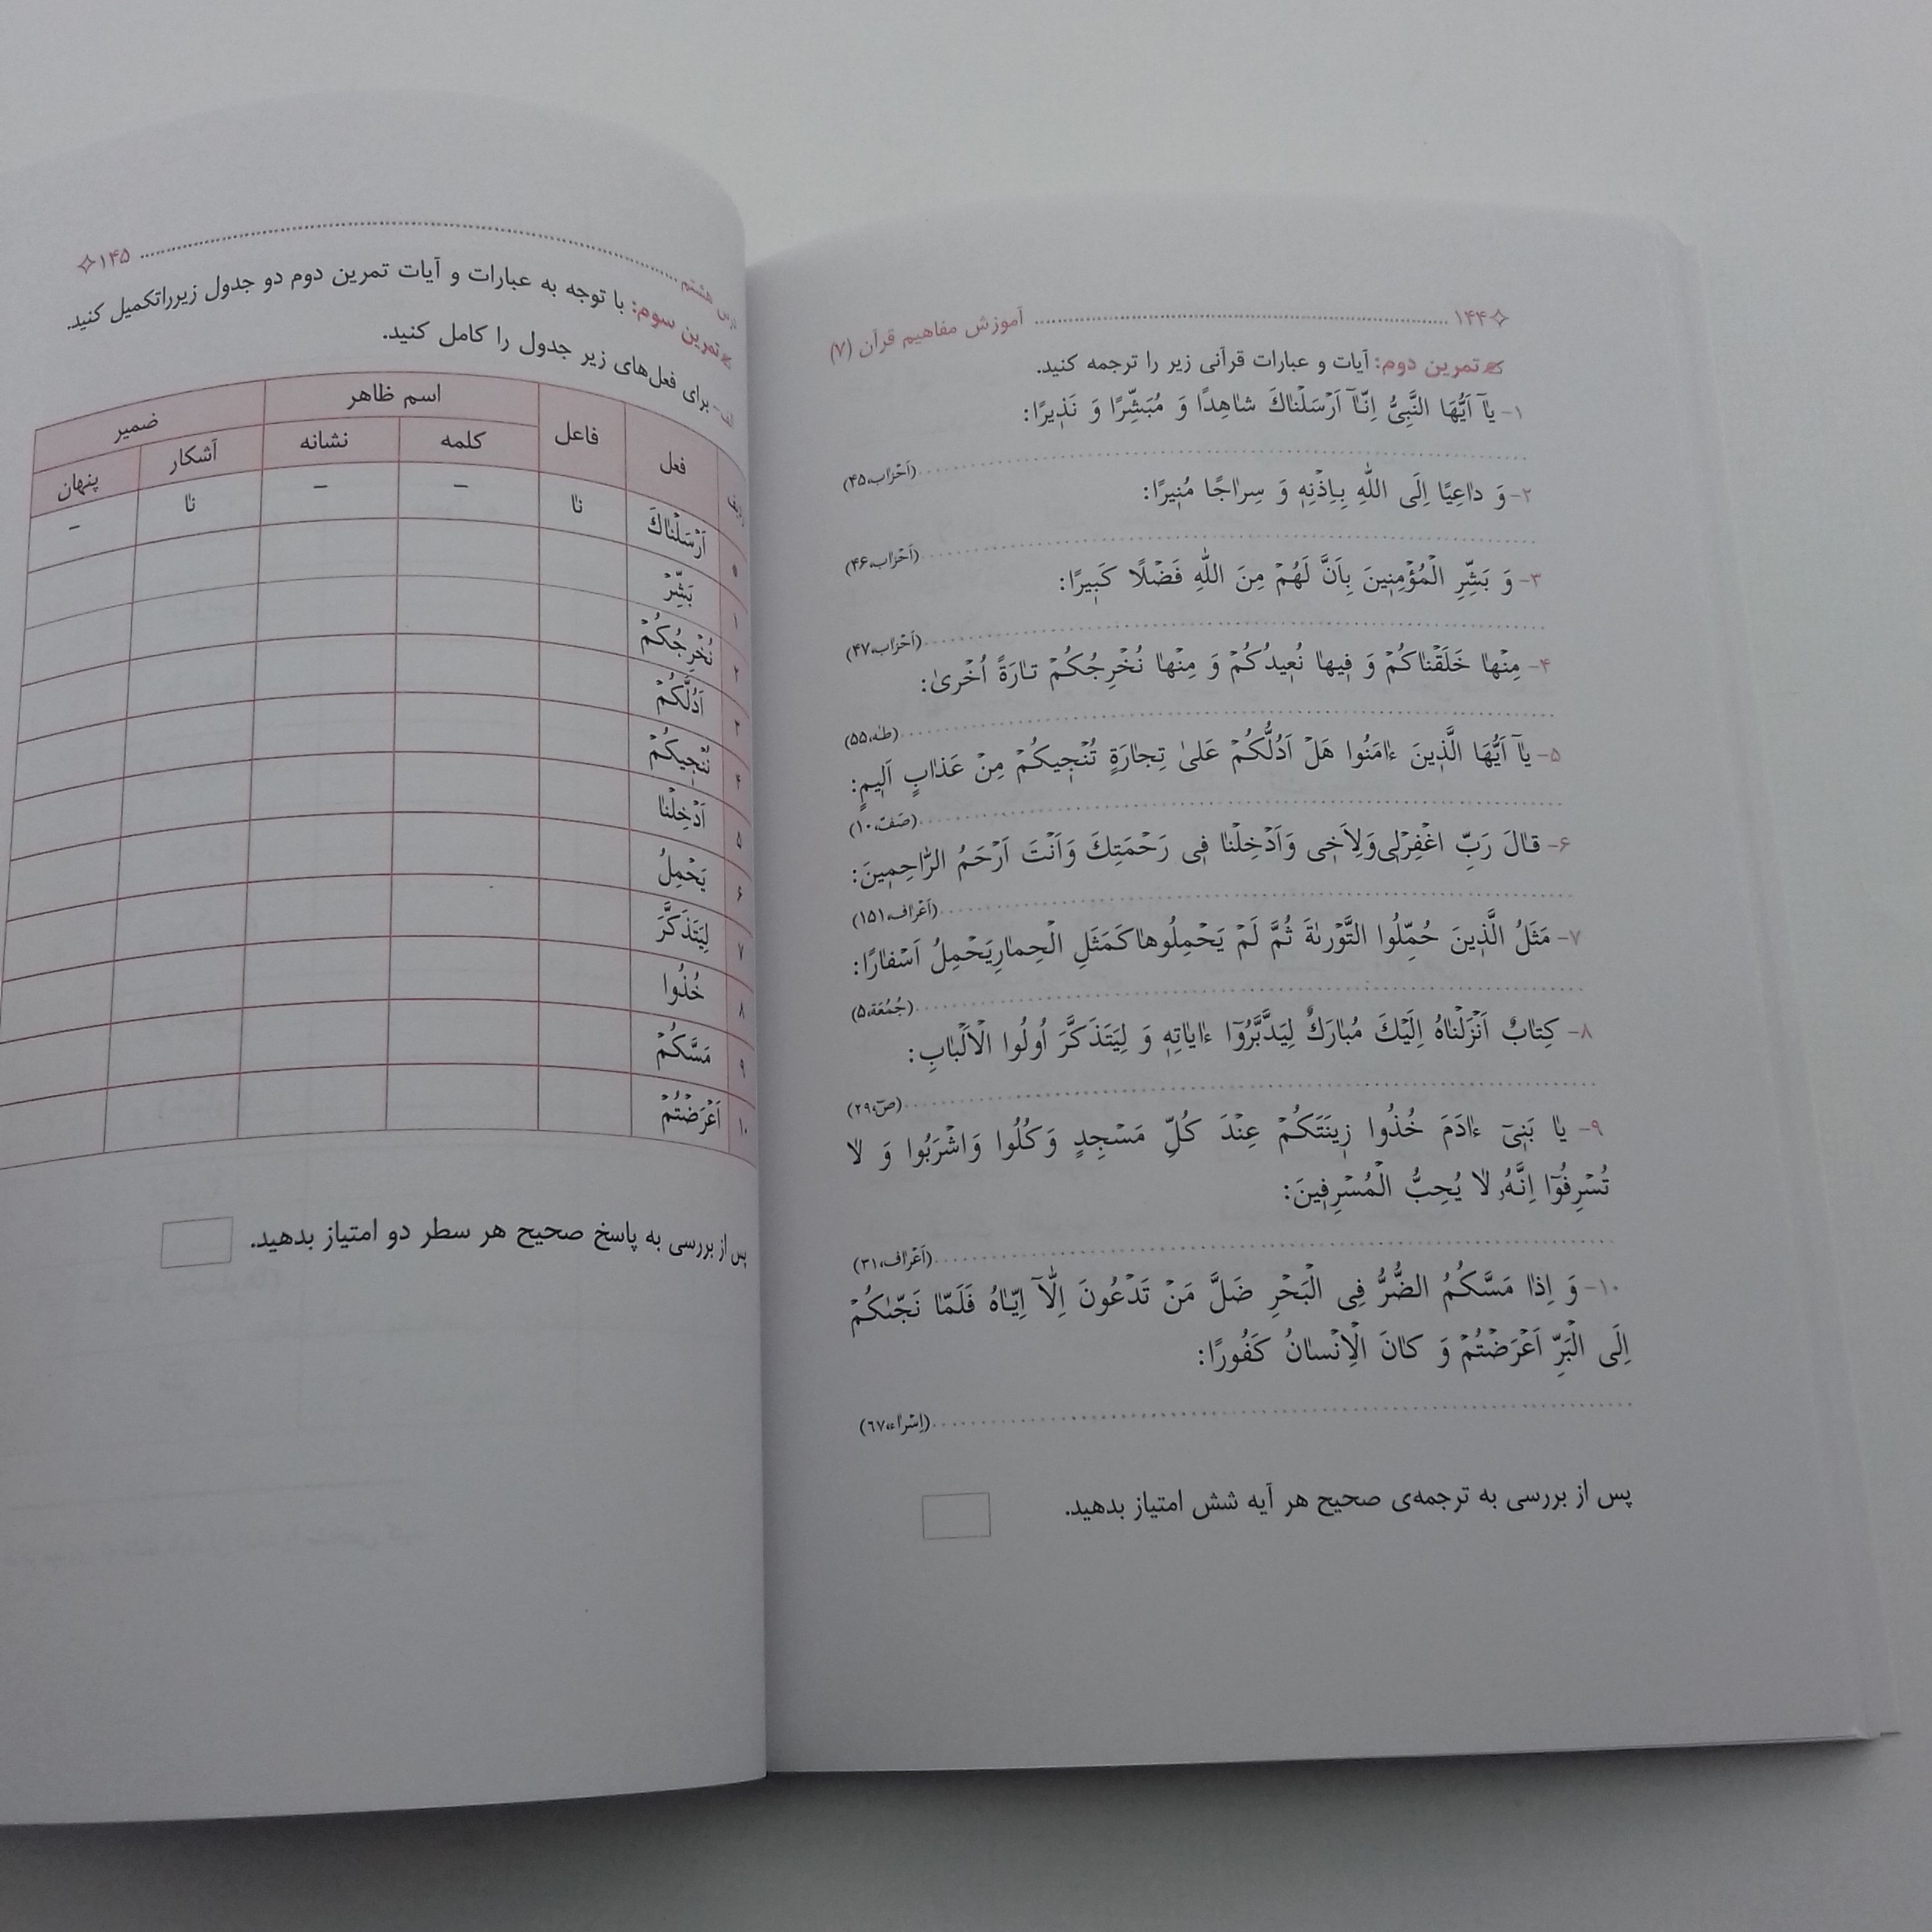 ۱۴۴ آموزش مفاهیم قرآن (۷)
تمرین دوم: آیات و عبارات قرآنی زیر را ترجمه کنید.
۱- یآ اَیُّهَا النَّبِیُّ اِنّآ اَرْسَلْناكَ شاهِدًا وَ مُبَشِّرًا وَ نَذیرًا:
(اَحْزاب،۴۵)
۲- وَ داعِیًا اِلَی اللّٰهِ بِاِذْنِهٖ وَ سِراجًا مُنیرًا:
(اَحْزاب،۴۶)
۳- وَ بَشِّرِ الْمُؤْمِنینَ بِاَنَّ لَهُمْ مِنَ اللّٰهِ فَضْلًا كَبیرًا:
(اَحْزاب،۴۷)
۴- مِنْها خَلَقْناكُمْ وَ فیها نُعیدُكُمْ وَ مِنْها نُخْرِجُكُمْ تارَةً اُخْریٰ:
(طٰه،۵۵)
۵- یآ اَیُّهَا الَّذینَ ءامَنُوا هَلْ اَدُلُّكُمْ عَلیٰ تِجارَةٍ تُنْجیكُمْ مِنْ عَذابٍ اَلیمٍ:
(صَفّ،۱۰)
۶- قالَ رَبِّ اغْفِرْلی وَلِاَخی وَاَدْخِلْنا فی رَحْمَتِكَ وَاَنْتَ اَرْحَمُ الرّاحِمینَ:
(اَعْراف،۱۵۱)
۷- مَثَلُ الَّذینَ حُمِّلُوا التَّوْرىٰةَ ثُمَّ لَمْ یَحْمِلُوها كَمَثَلِ الْحِمارِ یَحْمِلُ اَسْفارًا:
(جُمُعَة،۵)
۸- كِتابٌ اَنْزَلْناهُ اِلَیْكَ مُبارَكٌ لِیَدَّبَّرُوٓا ءایاتِهٖ وَ لِیَتَذَكَّرَ اُولُوا الْاَلْبابِ:
(صٓ،۲۹)
۹- یا بَنیٓ ءادَمَ خُذُوا زینَتَكُمْ عِنْدَ كُلِّ مَسْجِدٍ وَكُلُوا وَاشْرَبُوا وَ لا
تُسْرِفُوٓا اِنَّهُۥ لا یُحِبُّ الْمُسْرِفینَ:
(اَعْراف،۳۱)
۱۰- وَ اِذا مَسَّكُمُ الضُّرُّ فِی الْبَحْرِ ضَلَّ مَنْ تَدْعُونَ اِلّآ اِیّاهُ فَلَمّا نَجّىٰكُمْ
اِلَی الْبَرِّ اَعْرَضْتُمْ وَ كانَ الْاِنْسانُ كَفُورًا:
(اِسْراء،۶۷)
پس از بررسی به ترجمه‌ی صحیح هر آیه شش امتیاز بدهید.
هشتم ۱۴۵
تمرین سوم: با توجه به عبارات و آیات تمرین دوم دو جدول زیرراتکمیل کنید.
الف- برای فعل‌های زیر جدول را کامل کنید.
فعل فاعل اسم ظاهر ضمیر
کلمه نشانه آشکار پنهان
۰ اَرْسَلْناكَ نا – – نا –
۱ بَشِّرْ
۲ نُخْرِجُكُمْ
۳ اَدُلُّكُمْ
۴ تُنْجیكُمْ
۵ اَدْخِلْنا
۶ یَحْمِلُ
۷ لِیَتَذَكَّرَ
۸ خُذُوا
۹ مَسَّكُمْ
۱۰ اَعْرَضْتُمْ
پس از بررسی به پاسخ صحیح هر سطر دو امتیاز بدهید.